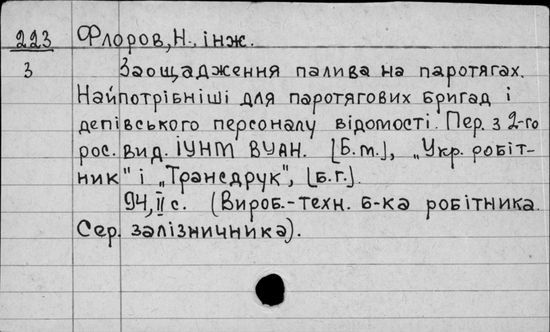 223 Флоров, Н., інж.
3 Заощадження палива на паротягах.
Найпотрібніші для паротягових бригад і
депівського персоналу відомості. Пер. з 2-го
рос. вид. ІУНМ ВУАН. [Б.м.], „Укр. робіт-
ник" і „Трансдрук", [б.г.].
94, II с. (Вироб.-техн. б-ка робітника.
Сер. залізничника).